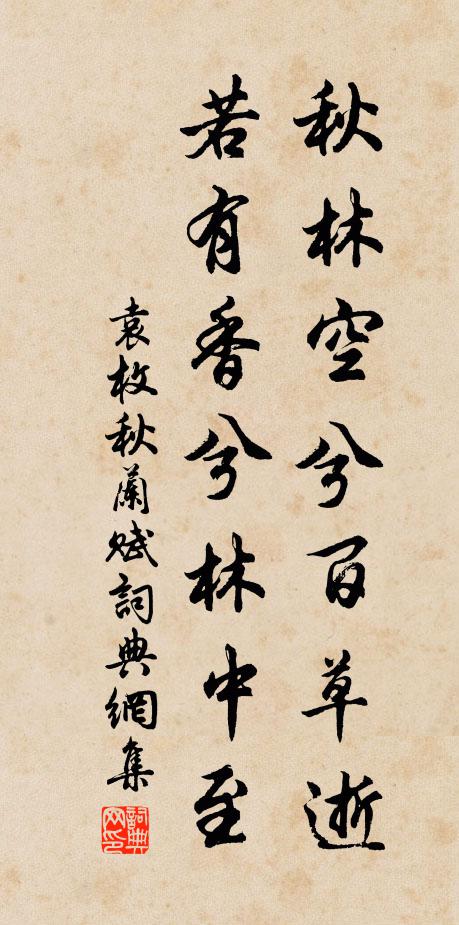 秋林空兮百草逝
若有香兮林中至
袁枚秋蘭賦詞典網集
詞典
网印